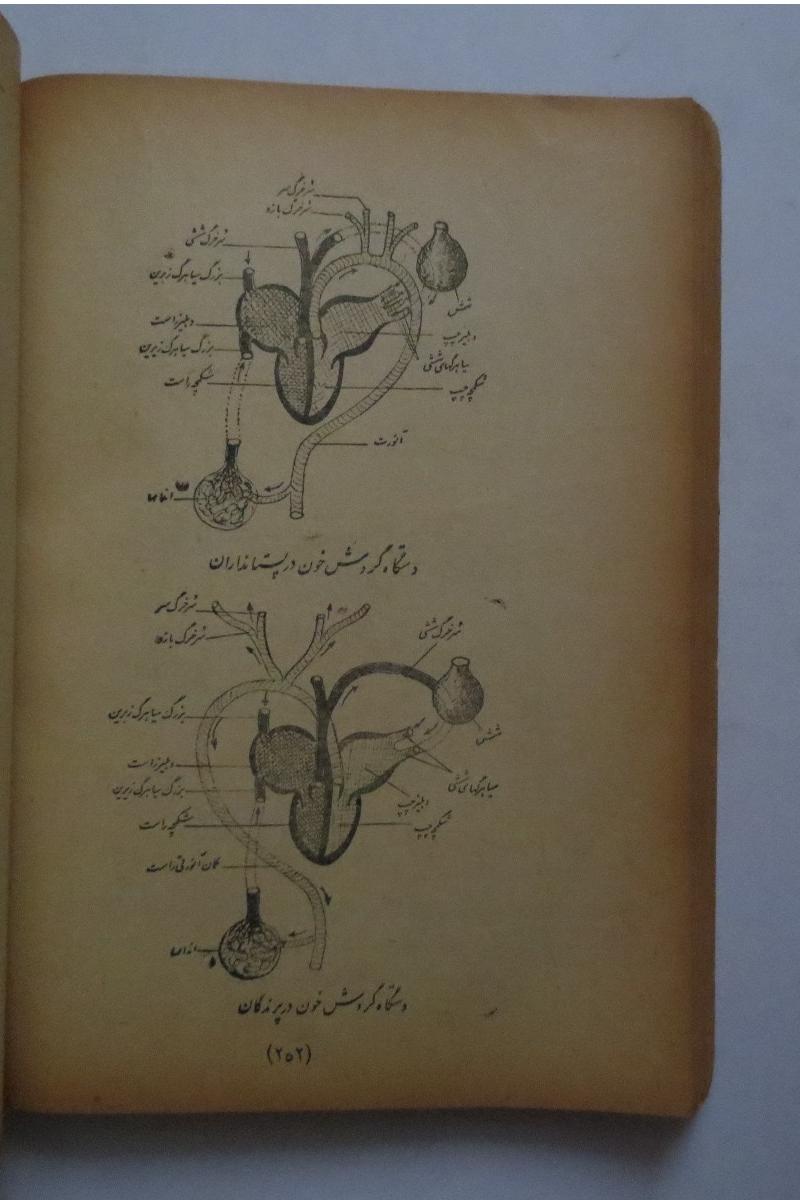 سرخرگ سر
سرخرگ بازو
سرخرگ ششی
بزرگ سیاهرگ زبرین
شش
دهلیز راست
دهلیز چپ
بزرگ سیاهرگ زیرین
سیاهرگهای ششی
شکمچه راست
شکمچه چپ
آئورت
اندامها
دستگاه گردش خون در پستانداران
سرخرگ سر
سرخرگ بازو
سرخرگ ششی
بزرگ سیاهرگ زبرین
شش
دهلیز راست
سیاهرگهای ششی
بزرگ سیاهرگ زیرین
دهلیز چپ
شکمچه راست
شکمچه چپ
کمان آئورتی راست
اندامها
دستگاه گردش خون در پرندگان
(۲۵۲)